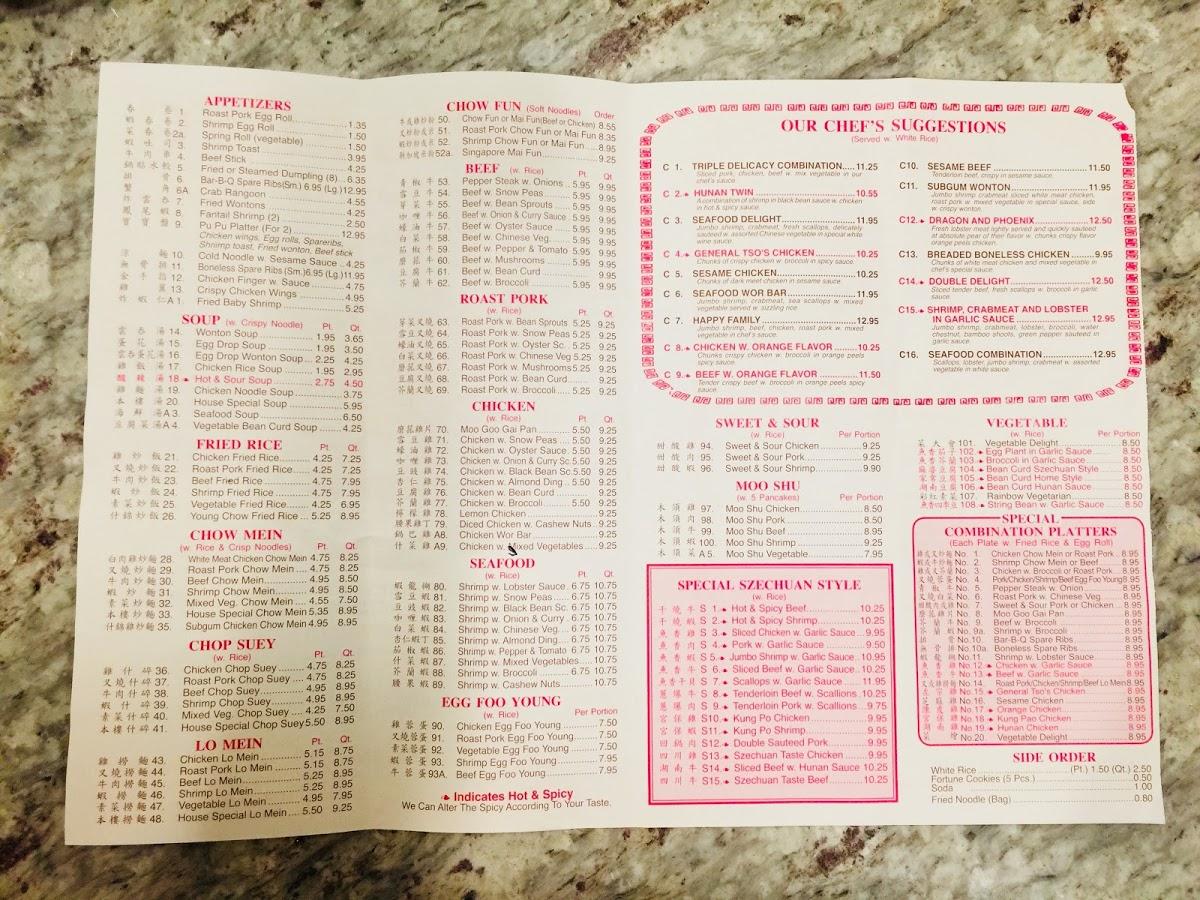 APPETIZERS
春卷 1. Roast Pork Egg Roll 1.35
蝦春卷 2. Shrimp Egg Roll 1.50
菜春卷 2a. Spring Roll (vegetable) 1.50
蝦吐司 3. Shrimp Toast 3.95
牛肉串 4. Beef Stick 4.25
鍋貼水餃 5. Fried or Steamed Dumpling (8) 6.35
排骨 6. Bar-B-Q Spare Ribs(Sm.) 6.95 (Lg.)12.95
蟹角 6A. Crab Rangoon 4.55
炸雲吞 7. Fried Wontons 4.25
鳳尾蝦 8. Fantail Shrimp (2) 2.50
寶寶盤 9. Pu Pu Platter (For 2) 12.95
Chicken wings, Egg rolls, Spareribs,
Shrimp toast, Fried wonton, Beef stick
涼麵 10. Cold Noodle w. Sesame Sauce 4.25
無骨排 11. Boneless Spare Ribs (Sm.)6.95 (Lg.)11.95
金手指 12. Chicken Finger w. Sauce 4.75
雞翼 13. Crispy Chicken Wings 4.95
炸蝦仁 A 1. Fried Baby Shrimp 5.25
SOUP (w. Crispy Noodle) Pt. Qt.
雲吞湯 14. Wonton Soup 1.95 3.65
蛋花湯 15. Egg Drop Soup 1.95 3.50
雲吞蛋花湯 16. Egg Drop Wonton Soup 2.25 4.25
雞飯湯 17. Chicken Rice Soup 1.95 2.95
酸辣湯 18. Hot & Sour Soup 2.75 4.50
雞麵湯 19. Chicken Noodle Soup 3.75
本樓湯 20. House Special Soup 5.95
海鮮湯 A 3. Seafood Soup 6.50
豆腐菜湯 A 4. Vegetable Bean Curd Soup 4.25
FRIED RICE Pt. Qt.
雞炒飯 21. Chicken Fried Rice 4.25 7.25
叉燒炒飯 22. Roast Pork Fried Rice 4.25 7.25
牛肉炒飯 23. Beef Fried Rice 4.75 7.95
蝦炒飯 24. Shrimp Fried Rice 4.75 7.95
素菜炒飯 25. Vegetable Fried Rice 4.25 6.95
什錦炒飯 26. Young Chow Fried Rice 5.25 8.95
CHOW MEIN
(w. Rice & Crisp Noodles) Pt. Qt.
白肉雞炒麵 28. White Meat Chicken Chow Mein 4.75 8.25
叉燒炒麵 29. Roast Pork Chow Mein 4.75 8.25
牛肉炒麵 30. Beef Chow Mein 4.95 8.50
蝦炒麵 31. Shrimp Chow Mein 4.95 8.50
素菜炒麵 32. Mixed Veg. Chow Mein 4.55 7.50
本樓炒麵 33. House Special Chow Mein 5.35 8.95
什錦雞炒麵 35. Subgum Chicken Chow Mein 4.95 8.95
CHOP SUEY
(w. Rice) Pt. Qt.
雞什碎 36. Chicken Chop Suey 4.75 8.25
叉燒什碎 37. Roast Pork Chop Suey 4.75 8.25
牛肉什碎 38. Beef Chop Suey 4.95 8.95
蝦什碎 39. Shrimp Chop Suey 4.95 8.95
素菜什碎 40. Mixed Veg. Chop Suey 4.25 7.50
本樓什碎 41. House Special Chop Suey 5.50 8.95
LO MEIN Pt. Qt.
雞撈麵 43. Chicken Lo Mein 5.15 8.75
叉燒撈麵 44. Roast Pork Lo Mein 5.15 8.75
牛肉撈麵 45. Beef Lo Mein 5.25 8.95
蝦撈麵 46. Shrimp Lo Mein 5.25 8.95
素菜撈麵 47. Vegetable Lo Mein 4.95 7.95
本樓撈麵 48. House Special Lo Mein 5.50 9.25
CHOW FUN (Soft Noodles) Order
50. Chow Fun or Mai Fun(Beef or Chicken) 8.55
51. Roast Pork Chow Fun or Mai Fun 8.35
52. Shrimp Chow Fun or Mai Fun 8.95
52a. Singapore Mai Fun 9.25
BEEF (w. Rice) Pt. Qt.
青椒牛 53. Pepper Steak w. Onions 5.95 9.95
雪豆牛 54. Beef w. Snow Peas 5.95 9.95
芽菜牛 55. Beef w. Bean Sprouts 5.95 9.95
咖喱牛 56. Beef w. Onion & Curry Sauce 5.95 9.95
蠔油牛 57. Beef w. Oyster Sauce 5.95 9.95
白菜牛 58. Beef w. Chinese Veg. 5.95 9.95
茄椒牛 59. Beef w. Pepper & Tomato 5.95 9.95
蘑菇牛 60. Beef w. Mushrooms 5.95 9.95
豆腐牛 61. Beef w. Bean Curd 5.95 9.95
芥蘭牛 62. Beef w. Broccoli 5.95 9.95
ROAST PORK
(w. Rice) Pt. Qt.
芽菜叉燒 63. Roast Pork w. Bean Sprouts 5.25 9.25
雪豆叉燒 64. Roast Pork w. Snow Peas 5.25 9.25
蠔油叉燒 65. Roast Pork w. Oyster Sc. 5.25 9.25
白菜叉燒 66. Roast Pork w. Chinese Veg 5.25 9.25
蘑菇叉燒 67. Roast Pork w. Mushrooms 5.25 9.25
豆腐叉燒 68. Roast Pork w. Bean Curd 9.25
芥蘭叉燒 69. Roast Pork w. Broccoli 5.25 9.25
CHICKEN
(w. Rice) Pt. Qt.
蘑菇雞片 70. Moo Goo Gai Pan 5.50 9.25
雪豆雞 71. Chicken w. Snow Peas 5.50 9.25
蠔油雞 72. Chicken w. Oyster Sauce 5.50 9.25
咖喱雞 73. Chicken w. Onion & Curry Sc. 5.50 9.25
豆豉雞 74. Chicken w. Black Bean Sc. 5.50 9.25
杏仁雞 75. Chicken w. Almond Ding 5.50 9.25
豆腐雞 76. Chicken w. Bean Curd 9.25
芥蘭雞 77. Chicken w. Broccoli 5.50 9.25
檸檬雞 78. Lemon Chicken 9.25
腰果雞丁 79. Diced Chicken w. Cashew Nuts 9.25
鍋巴雞 A8. Chicken Wor Bar 9.25
什菜雞 A9. Chicken w. Mixed Vegetables 9.25
SEAFOOD
(w. Rice) Pt. Qt.
蝦龍糊 80. Shrimp w. Lobster Sauce 6.75 10.75
雪豆蝦 81. Shrimp w. Snow Peas 6.75 10.75
豆豉蝦 82. Shrimp w. Black Bean Sc. 6.75 10.75
咖喱蝦 83. Shrimp w. Onion & Curry 6.75 10.75
白菜蝦 84. Shrimp w. Chinese Veg. 6.75 10.75
杏仁蝦丁 85. Shrimp w. Almond Ding 6.75 10.75
茄椒蝦 86. Shrimp w. Pepper & Tomato 6.75 10.75
什菜蝦 87. Shrimp w. Mixed Vegetables 10.75
芥蘭蝦 88. Shrimp w. Broccoli 6.75 10.75
腰果蝦 89. Shrimp w. Cashew Nuts 10.75
EGG FOO YOUNG
(w. Rice) Per Portion
雞蓉蛋 90. Chicken Egg Foo Young 7.50
叉燒蓉蛋 91. Roast Pork Egg Foo Young 7.50
素菜蓉蛋 92. Vegetable Egg Foo Young 7.50
蝦蓉蛋 93. Shrimp Egg Foo Young 7.50
牛蓉蛋 93A. Beef Egg Foo Young 7.50
Indicates Hot & Spicy
We Can Alter The Spicy According To Your Taste.
OUR CHEF'S SUGGESTIONS
(Served w. White Rice)
C 1. TRIPLE DELICACY COMBINATION 11.25
Sliced pork, chicken, beef w. mix vegetable in our
chef's sauce
C 2. HUNAN TWIN 10.55
A combination of shrimp in black bean sauce w. chicken
in hot & spicy sauce.
C 3. SEAFOOD DELIGHT 11.95
Jumbo shrimp, crabmeat, fresh scallops, delicately
sauteed w. assorted Chinese vegetable in special white
wine sauce.
C 4. GENERAL TSO'S CHICKEN 10.25
Chunks of crispy chicken w. broccoli in spicy sauce.
C 5. SESAME CHICKEN 10.25
Chunks of dark meat chicken in sesame sauce.
C 6. SEAFOOD WOR BAR 11.95
Jumbo shrimp, crabmeat, sea scallops w. mixed
vegetable served w. sizzling rice
C 7. HAPPY FAMILY 12.95
Jumbo shrimp, beef, chicken, roast pork w. mixed
vegetable in chef's sauce.
C 8. CHICKEN W. ORANGE FLAVOR 10.25
Chunks crispy chicken w. broccoli in orange peels
spicy sauce.
C 9. BEEF W. ORANGE FLAVOR 11.50
Tender crispy beef w. broccoli in orange peels spicy
sauce.
C10. SESAME BEEF 11.50
Tenderloin beef, crispy in sesame sauce.
C11. SUBGUM WONTON 11.95
Jumbo shrimp crabmeat sliced white meat chicken,
roast pork w. mixed vegetable in special sauce, side
w. crispy wonton.
C12. DRAGON AND PHOENIX 12.50
Fresh lobster meat lightly served and quickly sauteed
at absolute pear of their flavor w. chunks crispy flavor
orange peels chicken.
C13. BREADED BONELESS CHICKEN 9.95
Chunks of white meat chicken and mixed vegetable in
chef's special sauce.
C14. DOUBLE DELIGHT 12.50
Sliced tender beef, fresh scallops w. broccoli in garlic
sauce.
C15. SHRIMP, CRABMEAT AND LOBSTER
IN GARLIC SAUCE 12.95
Jumbo shrimp, crabmeat, lobster, broccoli, water
chestnut, bamboo shoots, green pepper sauteed in
garlic sauce.
C16. SEAFOOD COMBINATION 12.95
Scallops, lobster, jumbo shrimp, crabmeat w. assorted
vegetable in white sauce.
SWEET & SOUR
(w. Rice) Per Portion
甜酸雞 94. Sweet & Sour Chicken 9.25
甜酸肉 95. Sweet & Sour Pork 9.25
甜酸蝦 96. Sweet & Sour Shrimp 9.90
MOO SHU
(w. 5 Pancakes) Per Portion
木須雞 97. Moo Shu Chicken 8.50
木須肉 98. Moo Shu Pork 8.50
木須牛 99. Moo Shu Beef 8.95
木須蝦 100. Moo Shu Shrimp 9.25
木須菜 A 5. Moo Shu Vegetable 7.95
SPECIAL SZECHUAN STYLE
(w. Rice)
干燒牛 S 1. Hot & Spicy Beef 10.25
干燒蝦 S 2. Hot & Spicy Shrimp 10.25
魚香雞 S 3. Sliced Chicken w. Garlic Sauce 9.95
魚香肉 S 4. Pork w. Garlic Sauce 9.50
魚香蝦 S 5. Jumbo Shrimp w. Garlic Sauce 10.95
魚香牛 S 6. Sliced Beef w. Garlic Sauce 10.25
魚香干貝 S 7. Scallops w. Garlic Sauce 11.95
蔥爆牛 S 8. Tenderloin Beef w. Scallions 10.25
蔥爆肉 S 9. Tenderloin Pork w. Scallions 9.75
宮保雞 S10. Kung Po Chicken 9.95
宮保蝦 S11. Kung Po Shrimp 9.95
回鍋肉 S12. Double Sauteed Pork 9.95
四川雞 S13. Szechuan Taste Chicken 9.95
湖南牛 S14. Sliced Beef w. Hunan Sauce 10.25
四川牛 S15. Szechuan Taste Beef 10.25
VEGETABLE
(w. Rice) Per Portion
菜大會 101. Vegetable Delight 8.50
魚香茄子 102. Egg Plant in Garlic Sauce 8.50
魚香芥蘭 103. Broccoli in Garlic Sauce 8.50
麻婆豆腐 104. Bean Curd Szechuan Style 8.50
家常豆腐 105. Bean Curd Home Style 8.50
湖南豆腐 106. Bean Curd Hunan Sauce 8.50
彩虹素菜 107. Rainbow Vegetarian 8.50
魚香四季豆 108. String Bean w. Garlic Sauce 8.50
SPECIAL
COMBINATION PLATTERS
(Each Plate w. Fried Rice & Egg Roll)
No. 1. Chicken Chow Mein or Roast Pork 8.95
No. 2. Shrimp Chow Mein or Beef 8.95
No. 3. Chicken w. Broccoli or Roast Pork 8.95
No. 4. Pork/Chicken/Shrimp/Beef Egg Foo Young 8.95
No. 5. Pepper Steak w. Onion 8.95
No. 6. Roast Pork w. Chinese Veg 8.95
No. 7. Sweet & Sour Pork or Chicken 8.95
No. 8. Moo Goo Gai Pan 8.95
No. 9. Beef w. Broccoli 8.95
No. 9a. Shrimp w. Broccoli 8.95
No.10. Bar-B-Q Spare Ribs 8.95
No.10a. Boneless Spare Ribs 8.95
No.11. Shrimp w. Lobster Sauce 8.95
No.12. Chicken w. Garlic Sauce 8.95
No.13. Beef w. Garlic Sauce 8.95
No.14. Roast Pork/Chicken/Shrimp/Beef Lo Mein 8.95
No.15. General Tso's Chicken 8.95
No.16. Sesame Chicken 8.95
No.17. Orange Chicken 8.95
No.18. Kung Pao Chicken 8.95
No.19. Hunan Chicken 8.95
No.20. Vegetable Delight 8.95
SIDE ORDER
White Rice (Pt.) 1.50 (Qt.) 2.50
Fortune Cookies (5 Pcs.) 0.50
Soda 1.00
Fried Noodle (Bag) 0.80